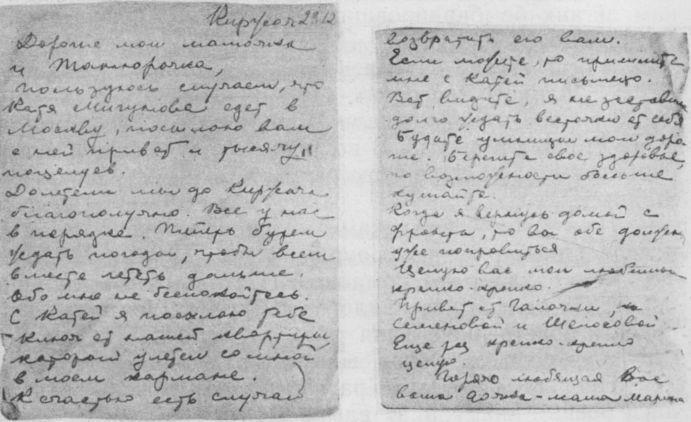 Киржач 29.12
Дорогие мои мамочка
и Танюрочка,
пользуюсь случаем, что
Катя Мигунова едет в
Москву, посылаю вам
с ней привет и тысячу
поцелуев.
Долетели мы до Киржача
благополучно. Все у нас
в порядке. Теперь будем
ждать погоды, чтобы всем
вместе лететь дальше.
Обо мне не беспокойтесь.
С Катей я посылаю тебе
ключ от нашей квартиры
который улетел со мной
в моем кармане.
К счастью есть случай
возвратить его вам.
Если можете, то пришлите
мне с Катей письмецо.
Вот видите, я не заставила
долго ждать весточки от себя
Будьте умницы мои доро-
гие. Берегите свое здоровье,
по возможности больше
кушайте.
Когда я вернусь домой с
фронта, то вы обе должны
уже поправиться
Целую вас мои любимые
крепко-крепко.
Привет от Галочки,
Семеновой и
Еще раз крепко-крепко
целую.
Горячо любящая Вас
ваша дочка-мама Марина